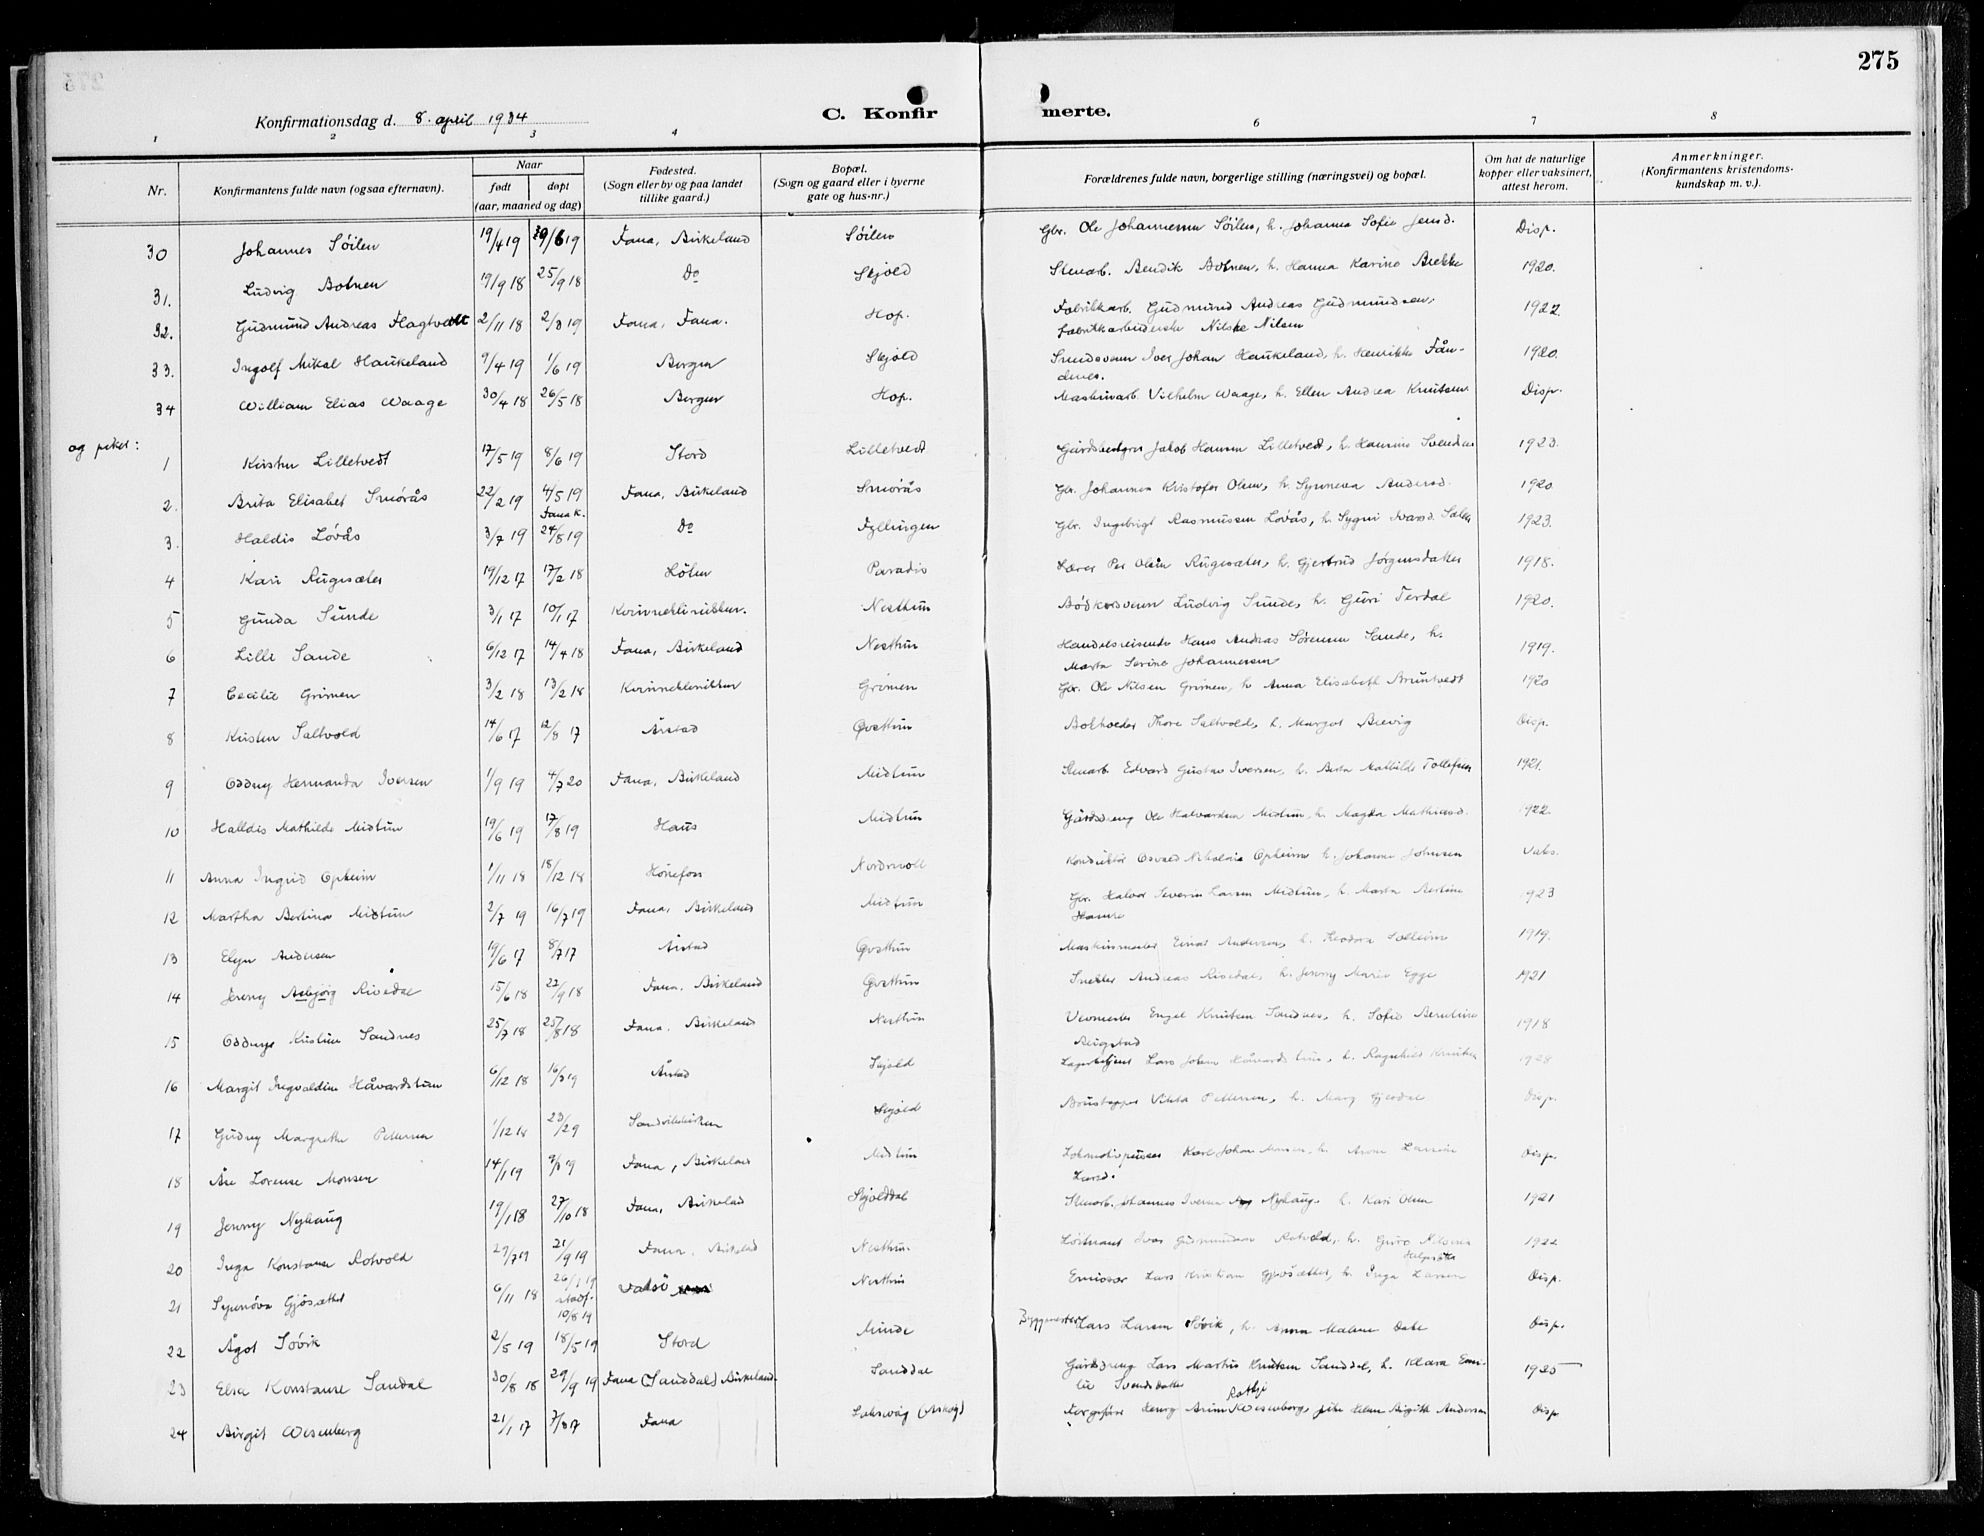 275
Konfirmationsdag d. 8. april 1934
C. Konfir merte.
1 2 3 4 6 7 8
Nr.
Konfirmantens fulde navn (ogsaa efternavn).
Naar
født døpt
(aar, maaned og dag)
Fødested.
(Sogn eller by og paa landet
tillike gaard.)
Bopæl.
(Sogn og gaard eller i byerne
gate og hus-nr.)
Forældrenes fulde navn, borgerlige stilling (næringsvei) og bopæl.
Om hat de naturlige
kopper eller vaksinert,
attest herom.
Anmerkninger.
(Konfirmantens kristendoms-
kundskap m. v.).
30 Johannes Söilen 19/4 19 29/6 19 Fana, Birkeland Söilen Gbr. Ole Johannessen Söilen, h. Johanna Sofie Jensd. Disp.
31. Ludvig Botnen 19/9 18 25/9 18 Do Skjold Stenarb. Bendik Botnen, h. Hanna Karine Brekke 1920.
32. Gudmund Andreas Flagtvedt 2/11 18 2/3 19 Fana, Fana. Hop. Fabrikkarb. Gudmund Andreas Gudmundsen,
Fabrikkarbeiderske Nilsen 1922
33. Ingolf Mikal Haukeland 9/4 19 1/6 19 Bergen Skjold Smedsvenn Iver Johan Haukeland, h. Henrikke 1920.
34 William Elias Waage 30/4 18 26/5 18 Bergen Hop. Maskinarb. Vilhelm Waage, h. Ellen Andrea Knutsen Disp.
og piker:
1 Kirsten Lilletvedt 17/5 19 8/6 19 Stord Lilletvedt Jakob Hansen Lilletvedt, h. Hansine Svendsen 1923.
2. Brita Elisabet Smørås 22/2 19 4/5 19 Fana, Birkeland Smørås Gbr. Johannes Kristofer Olsen, h. Synneva Andersd. 1920.
Fana K.
3. Haldis Lövås 3/7 19 24/8 19 Do Fyllingen Gbr. Ingebrigt Rasmussen Lövås, h. Sygni Ivarsd. 1923.
4 Kari Rugesæter 19/12 17 17/2 18 Paradis Lærer Per Olsen Rugesæter, h. Gjertrud Jörgensdatter 1918.
5 Gunda Sunde 3/1 17 10/1 17 Kvinneklinikken. Nesttun Bödkersvenn Ludvig Sunde, h. Guri Ferdal 1920.
6 Lilli Sande 6/12 17 14/4 18 Fana, Birkeland Nesttun Handelsreisende Hans Andreas Sörensen Sande, h.
Marta Serine Johannesen 1919.
7 Cecilie Grimen 3/2 18 13/2 18 Kvinneklinikken Grimen Gbr. Ole Nilsen Grimen, h. Anna Elisabeth Bruntvedt 1920
8 Kirsten Saltvold 14/6 17 12/8 17 Årstad Øvsttun Thore Saltvold, h. Margot Brevig Disp.
9 Oddny Hermanda Iversen 1/9 19 4/7 20 Fana, Birkeland Midtun Stenarb. Edvard Gustav Iversen, h. Berta Mathilde Tollefsen 1921.
10 Halldis Mathilde Midtun 19/6 19 17/8 19 Haus Midtun Gårdsdreng Ole Halvardsen Midtun, h. Magda 1922.
11 Anna Ingrid Opheim 1/11 18 18/12 18 Hönefoss Konduktör Osvald Nikolais Opheim h. Johanne Johnsen Vaks.
12 Martha Bertina Midtun 2/7 19 16/7 19 Fana, Birkeland Midtun Gbr. Halvor Severin Larsen Midtun, h. Marta Bertine
Hamre 1923
13 Elyn Andersen 19/6 17 8/7 17 Årstad Øvsttun Maskinmester Einar Andersen, h. Teodora 1919.
14 Jenny Asbjörg Risedal 15/6 18 22/9 18 Fana, Birkeland Øvsttun Snekker Andreas Risedal, h. Jenny Marie Egge 1921
15 Oddny Kristine Sandnes 25/7 18 25/8 18 Fana, Birkeland Nesttun Engel Knutsen Sandnes, h. Sofie Berntine
Augstad 1918
16 Margit Ingvaldine Håvardstun 6/12 18 16/3 19 Årstad Skjold Lagerbetjent Lars Johan Håvardstun, h. Ragnhild Knutsen 1928
17 Gudny Margrethe Pettersen 1/12 18 23/ 29 Sandvikskirken Skjold Pettersen, h. Mary Disp.
18 Åse Lorense Monsen 14/1 19 9/3 19 Fana, Birkeland Midtun Lokomotivpusser Karl Johan Monsen, h. Anna
Larsd. Disp.
19 Jenny Nyhaug 19/1 18 27/10 18 Fana, Birkelad Skjolddal Stenarb. Johannes Iversen Nyhaug h. Kari Olsen 1921
20 Inga Konstanse Rotvold 27/7 19 21/9 19 Fana, Birkelad Nesttun Löitnant Ivar Gudmundsen Rotvold, h. Guro Nilsen
Helgesætra 1922
21 Synnöva Gjösæter 6/11 18 26/1 19 Nesttun Emissær Lars Kristian Gjösæther, h. Inga Larsen Disp.
stadf.
10/8 19
22 Ågot Søvik 2/5 19 18/5 19 Stord Minde Byggmester Lars Larsen Søvik, h. Anna Malene Disp.
23 Elsa Konstanse Sandal 30/8 18 29/9 19 Fana (Sanddal) Birkeland. Sanddal Gårdsdreng Lars Martin Knutsen Sanddal, h. Klara Emi-
lie Svendsdatter 1925
24 Birgit Wesenberg 21/1 17 7/3 17 Fana Laksevåg (Askøy) Henry Wesenberg, Birgith Andersen Disp